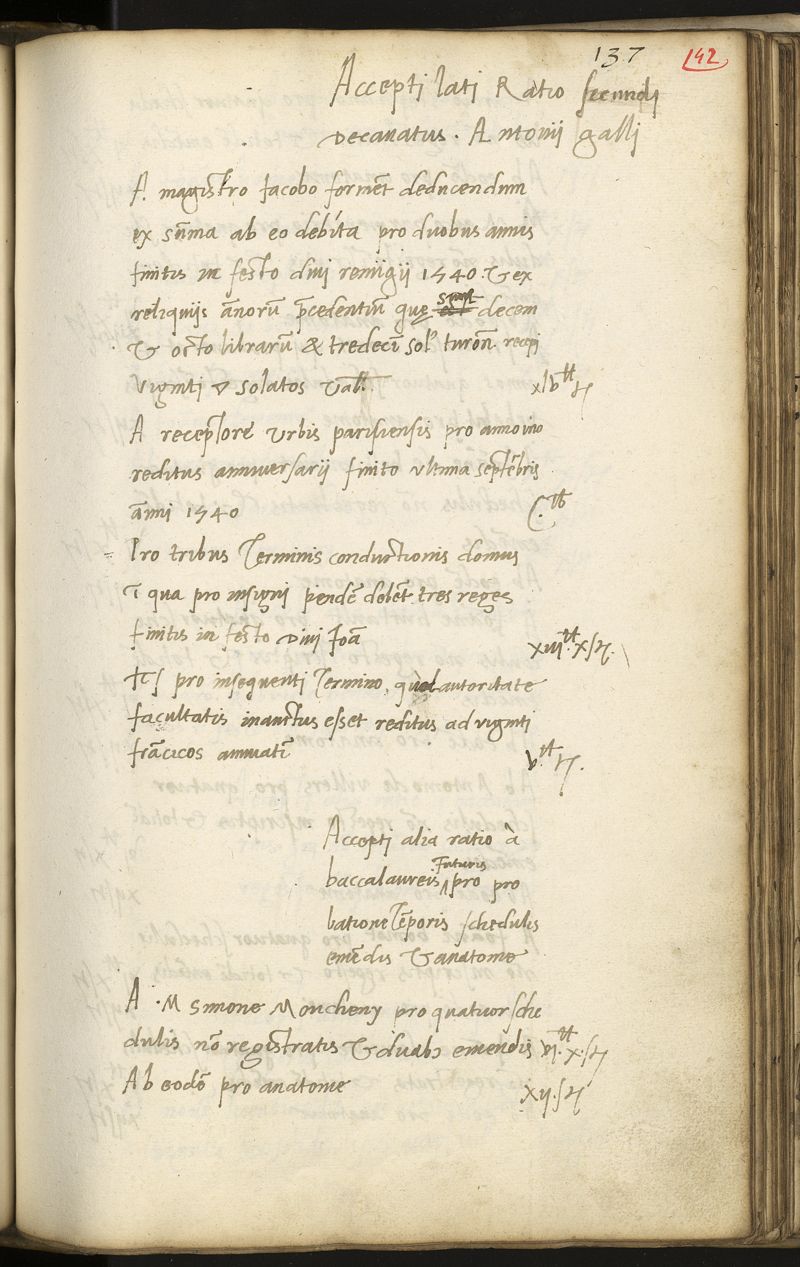 137 142
Accepti lati Ratio secundi
decanatus. Antonij galli
A magistro Jacobo forment deducendum
ex sūma ab eo debita pro duobus annis
finitis in festo divi remigij 1540. & ex
reliquijs ānorū p̄cedentiū quę sunt decem
& octo librarū & tredeci sol' turon̄ recepi
viginti solatos
xlv tt
A receptore urbis parisiensis pro anno uno
reditus anniversarij finito ultima septēbris
āni 1540 C. tt
Pro tribus Terminis conductionis domus
ī qua pro insigni pendē debēt tres reges
finitis in festo divi Joā xiij tt x s
pro insequenti Termino, quod autoritate
facultatis inauctus esset reditus ad viginti
frācicos annuatī v tt
Accepti alia ratio à
baccalaureis futuris pro pro
batione Tēporis schedulis
emēdis & anatome
A. M Simone Moucheny pro quatuor sche
dulis nō registratis & duab emendis vj. tt x. s
Ab eodē pro anatome xij. s